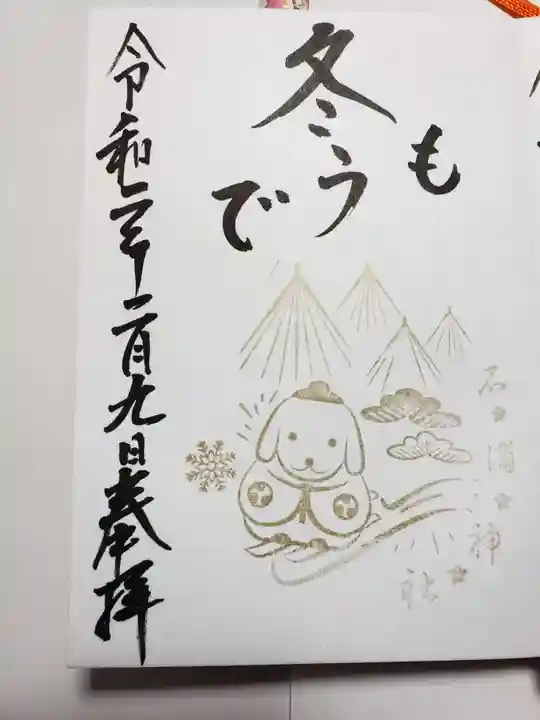 冬もうで
石浦神社
令和二年二月九日奉拝